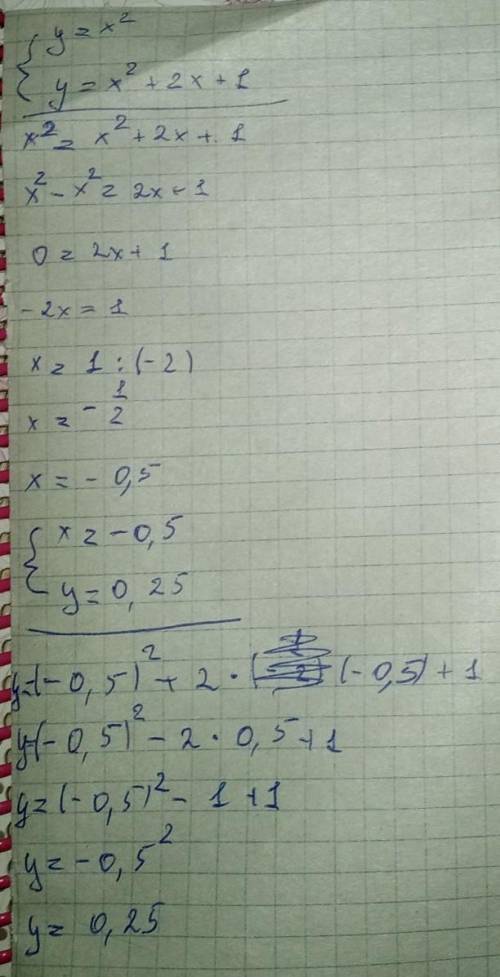 { y = x²
y = x² + 2x + 1
x² = x² + 2x + 1
x² - x² = 2x + 1
0 = 2x + 1
-2x = 1
x = 1 : (-2)
x = - 1/2
x = - 0,5
{ x = -0,5
y = 0,25
y = (-0,5)² + 2 · (-0,5) + 1
y = (-0,5)² - 2 · 0,5 + 1
y = (-0,5)² - 1 + 1
y = -0,5²
y = 0,25